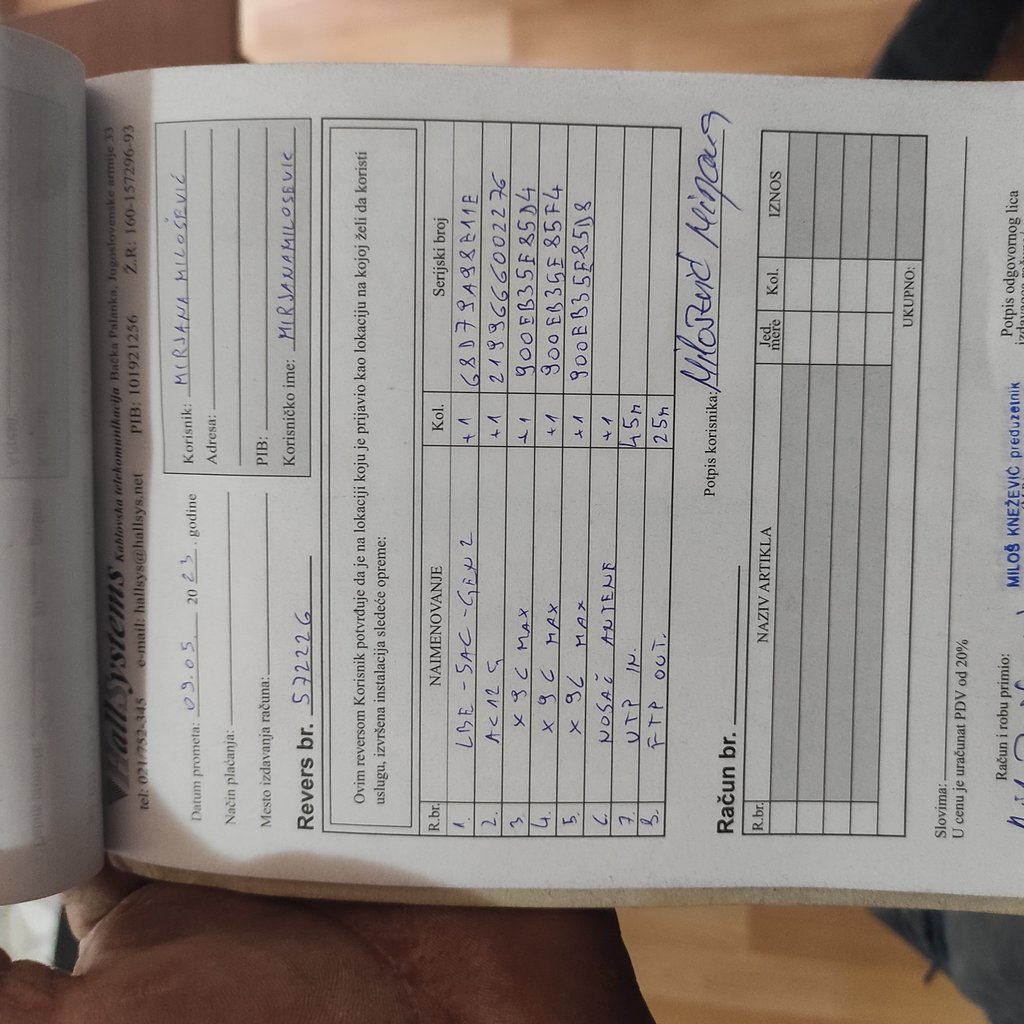 HallSystems Kablovska telekomunikacija Bačka Palanka, Jugoslovenske armije 33
tel: 021/752-345 e-mail: hallsys@hallsys.net PIB: 101921256 Ž.R: 160-157296-93
Datum prometa: 09.05 2023. godine
Način plaćanja:
Mesto izdavanja računa:
Korisnik: MIRJANA MILOŠEVIĆ
Adresa:
PIB:
Korisničko ime: MIRJANAMILOSEVIC
Revers br. 572226
Ovim reversom Korisnik potvrđuje da je na lokaciji koju je prijavio kao lokaciju na kojoj želi da koristi
uslugu, izvršena instalacija sledeće opreme:
R.br. NAIMENOVANJE Kol. Serijski broj
1. LBE-5AC-GEN2 +1 68D79A98E11E
2. AC12 G +1 2199666002276
3. X 96 MAX +1 900EB35E85D4
4. X 96 MAX +1 900EB35E85F4
5. X 96 MAX +1 900EB35E85D8
6. NOSAČ ANTENE +1
7. UTP IN. 45m
8. FTP OUT. 25m
Potpis korisnika: Milošević Mirjana
Račun br.
R.br. NAZIV ARTIKLA Jed. mere Kol. IZNOS
UKUPNO:
Slovima:
U cenu je uračunat PDV od 20%
Račun i robu primio:
MILOŠ KNEŽEVIĆ preduzetnik
Potpis odgovornog lica